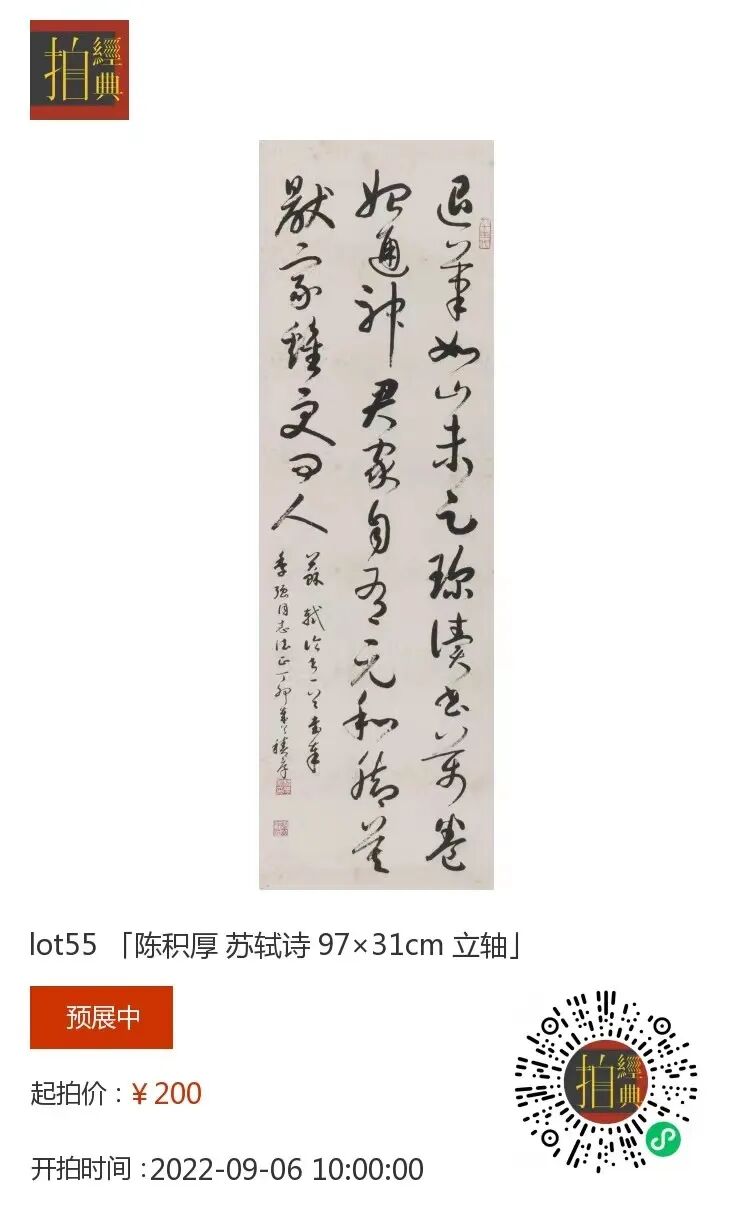 拍
經典
退筆如山未足珍讀書萬卷
始通神君家自有元和脚莫
厭家雞更問人
蘇軾
季強同志法正丁卯積厚
lot55 「陈积厚 苏轼诗 97×31cm 立轴」
预展中
起拍价：¥200
开拍时间：2022-09-06 10:00:00
拍
經典